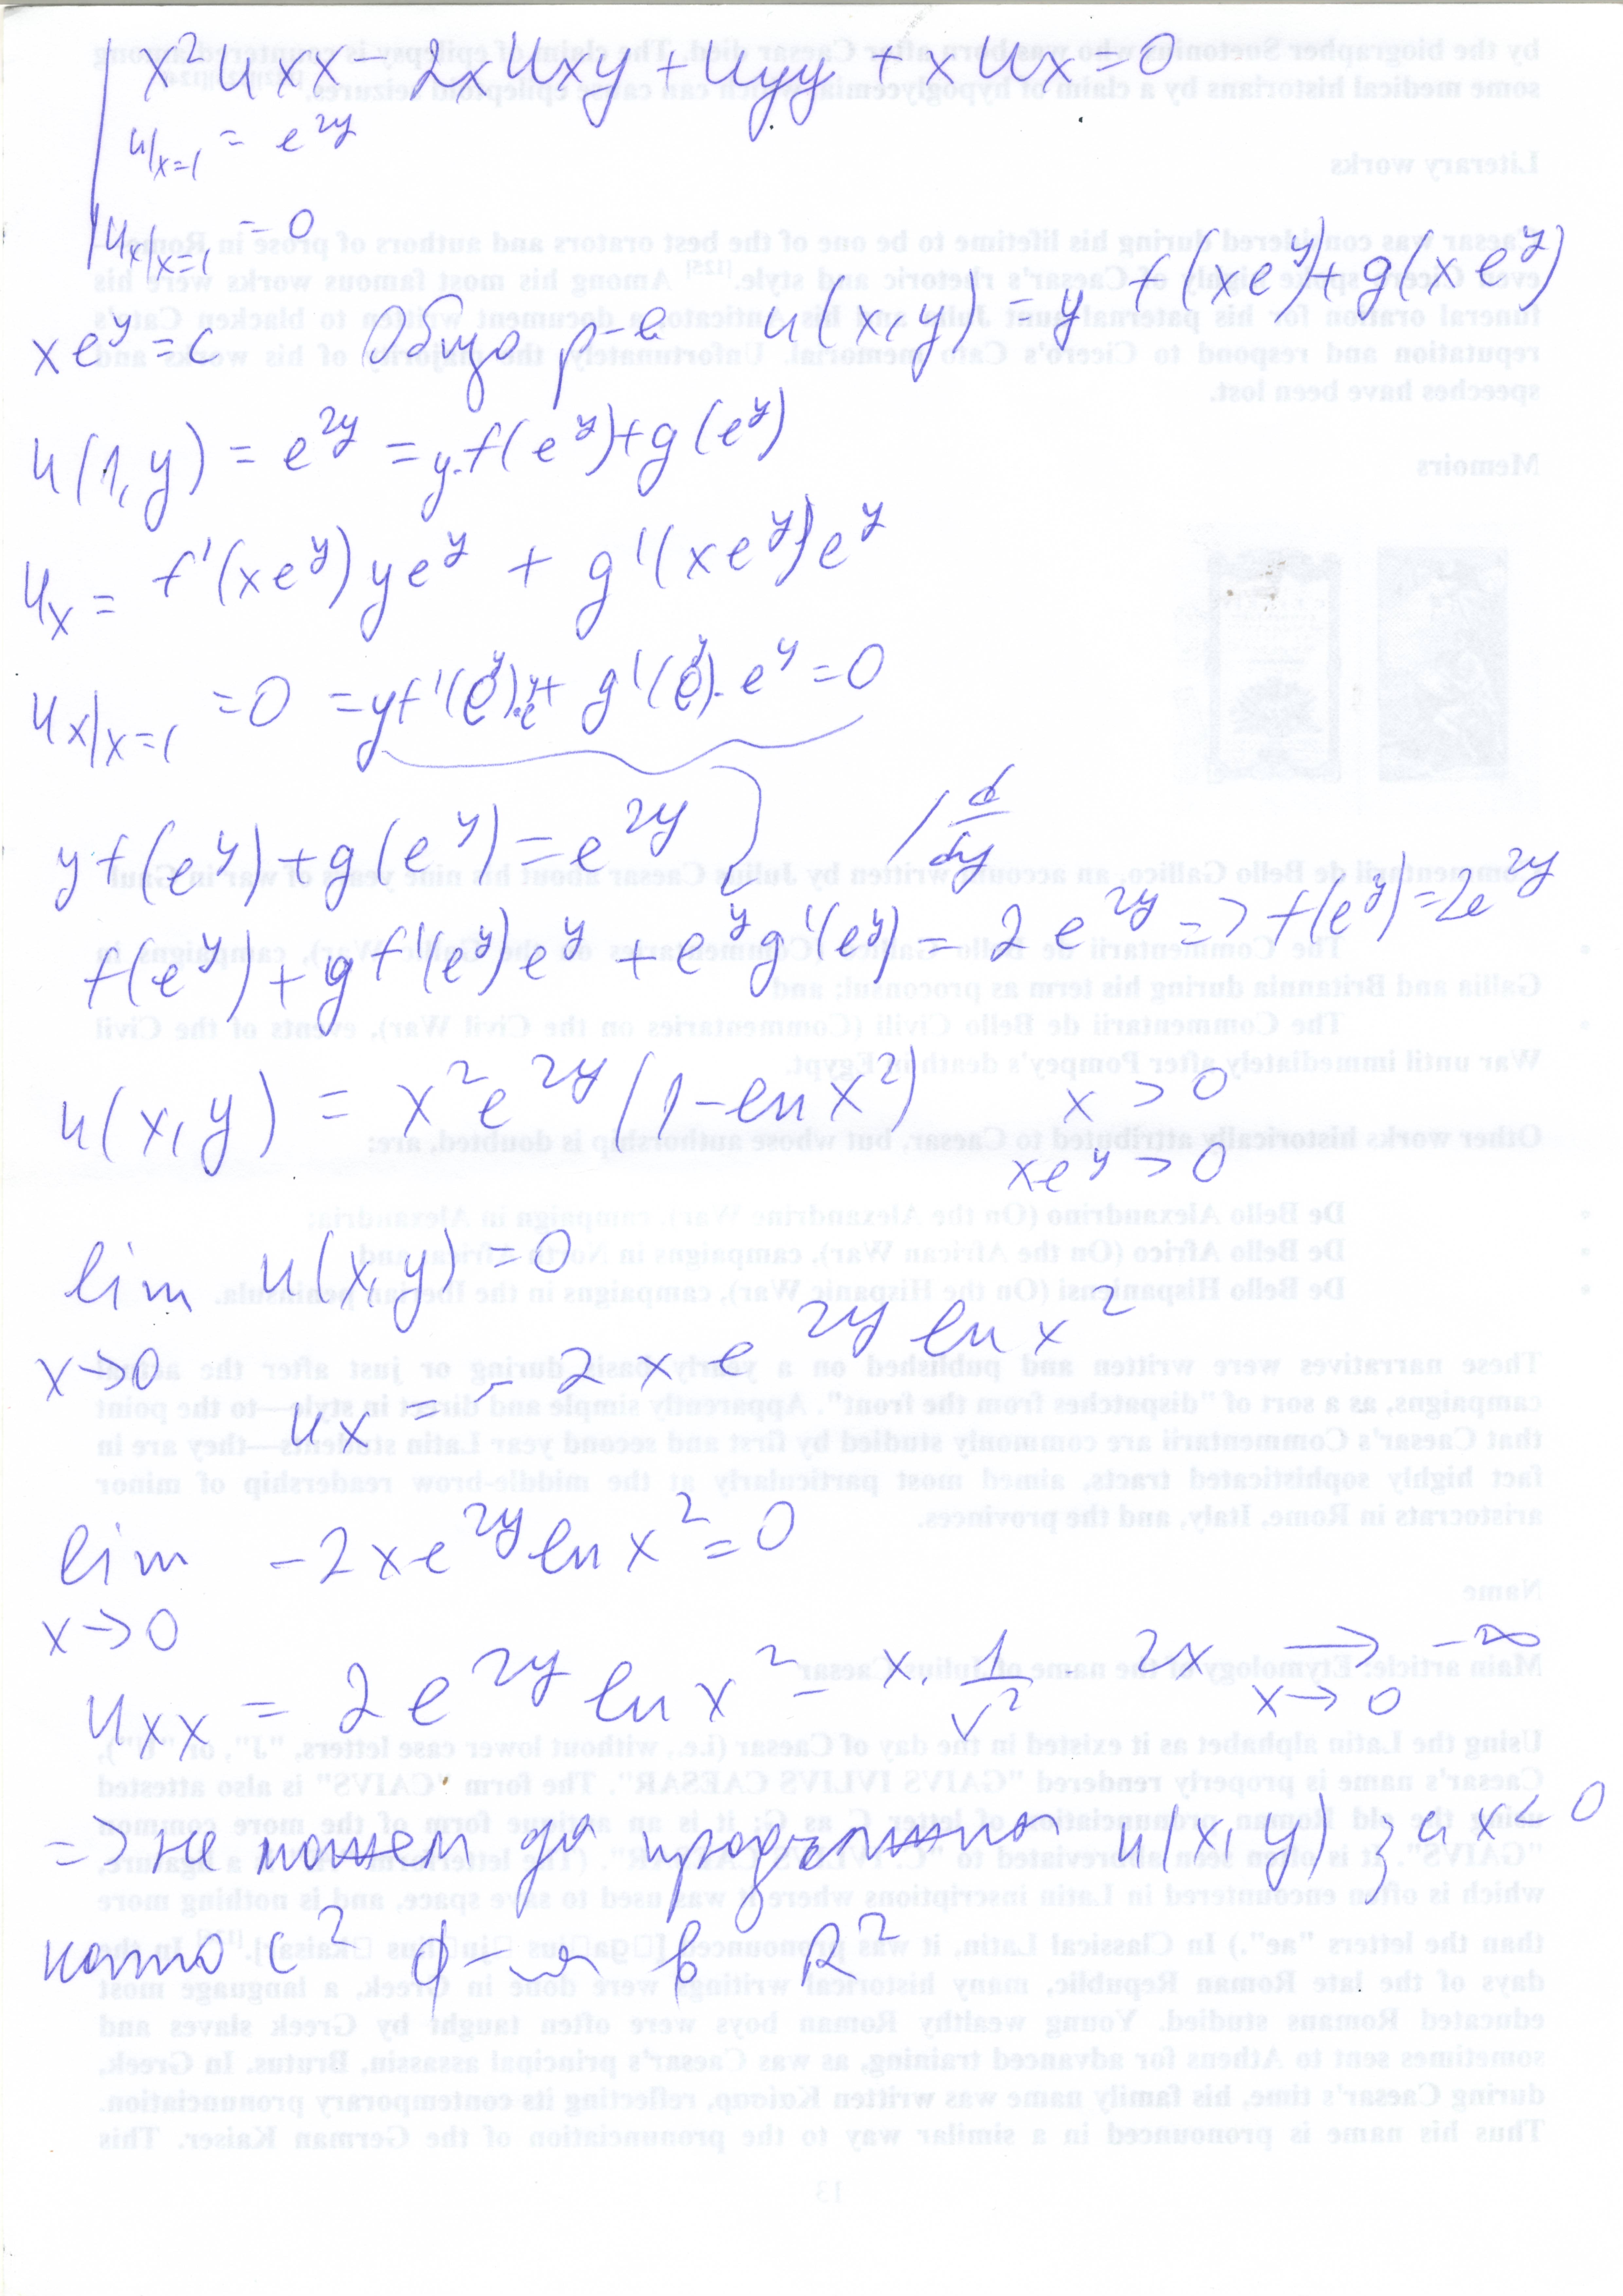 x² uxx - 2x uxy + uyy + x ux = 0
u|x=1 = e^2y
ux|x=1 = 0
xe^y = c общо р-е u(x,y) = y f(xe^y) + g(xe^y)
u(1,y) = e^2y = y.f(e^y) + g(e^y)
ux = f'(xe^y) y e^y + g'(xe^y) e^y
ux|x=1 = 0 = y f'(e^y).e^y + g'(e^y).e^y = 0
y f(e^y) + g(e^y) = e^2y / d/dy
f(e^y) + y f'(e^y) e^y + e^y g'(e^y) = 2 e^2y => f(e^y) = 2e^2y
u(x,y) = x² e^2y (1 - ln x²) x > 0
xe^y > 0
lim u(x,y) = 0
x→0
ux = - 2 x e^2y ln x²
lim -2 x e^2y ln x² = 0
x→0
uxx = 2 e^2y ln x² - x. 1/x² . 2x → -∞
x→0
=> не можем да продължим u(x,y) за x<0
като C² ф-ия в R²